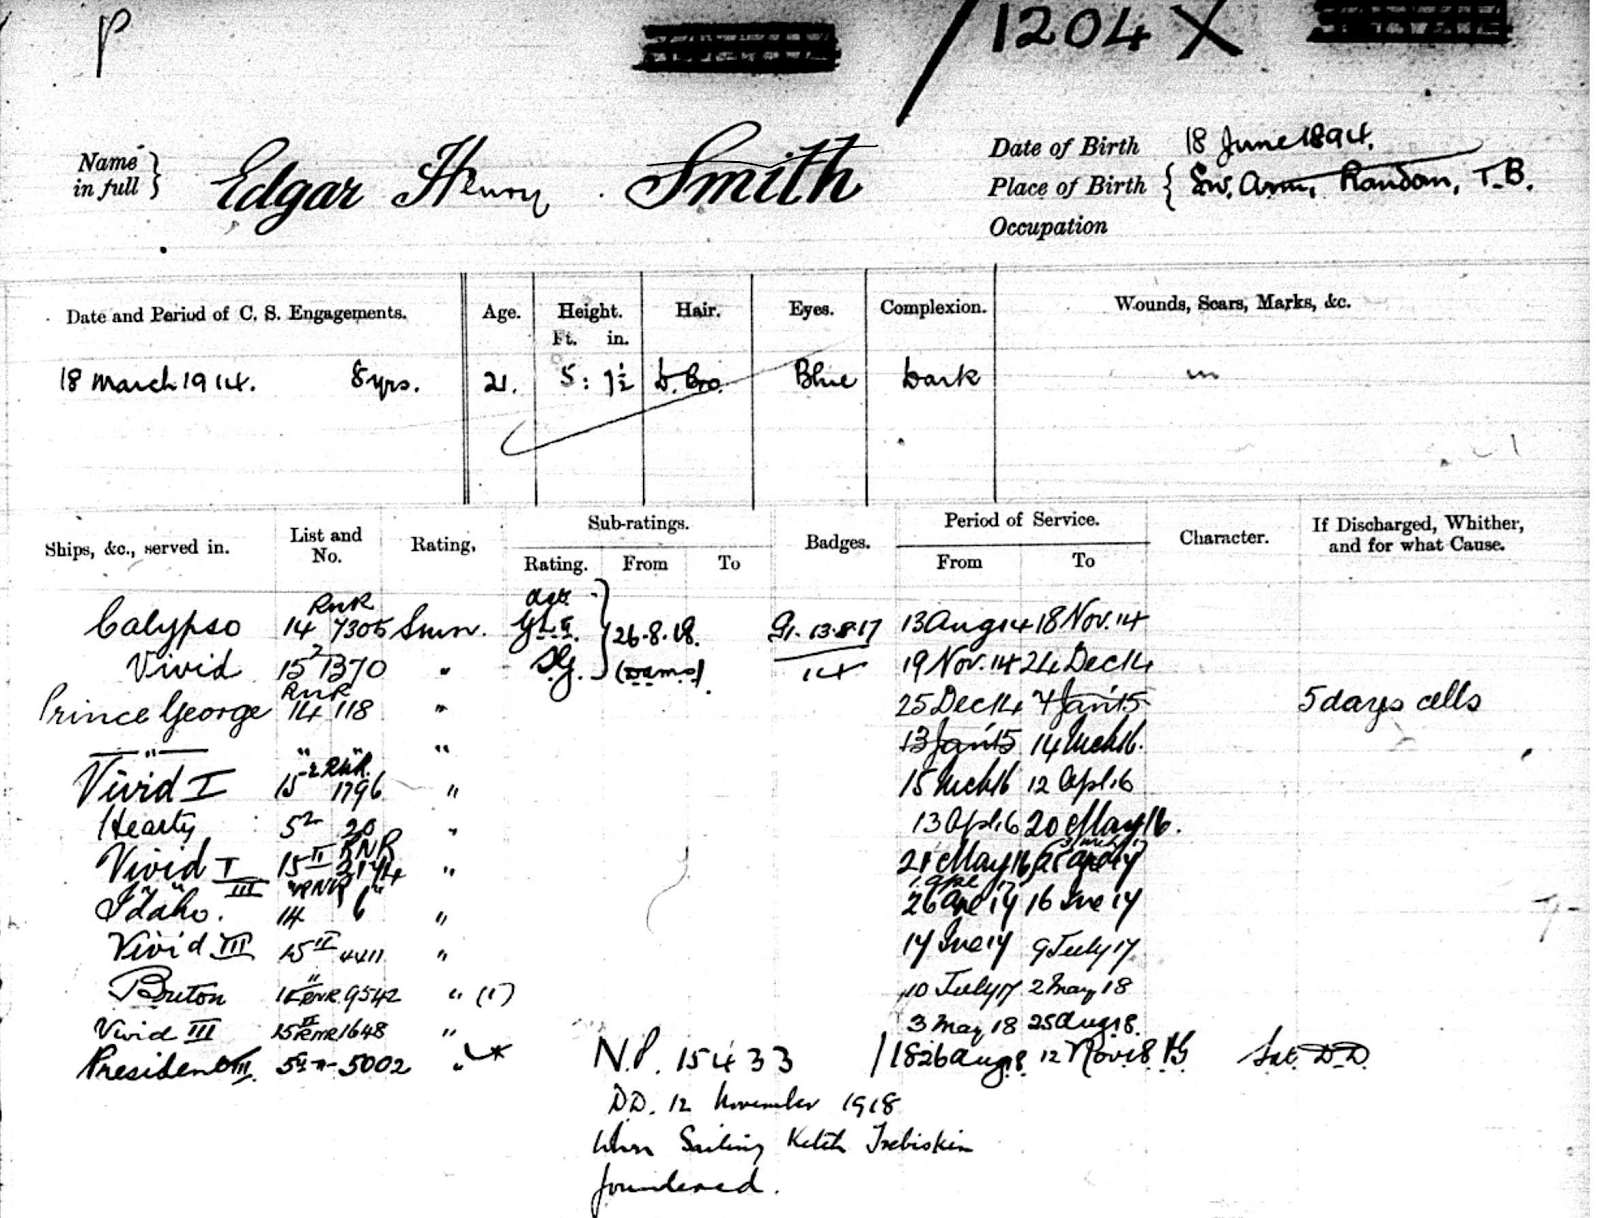 P
/ 1204 X
Name in full } Edgar Henry Smith
Date of Birth 18 June 1894.
Place of Birth { Sw. Arm, Random, T.B.
Occupation
Date and Period of C. S. Engagements. Age. Height. Ft. in. Hair. Eyes. Complexion. Wounds, Scars, Marks, &c.
18 March 1914. 8 yrs. 21. 5: 7½ D. Bro. Blue Dark
Ships, &c., served in. List and No. Rating, Sub-ratings. Rating. From To Badges. Period of Service. From To Character. If Discharged, Whither, and for what Cause.
Calypso RNR 14 7305 Smn. 26.8.18. G1. 13.8.17 13 Aug 14 18 Nov. 14
Vivid 15² 1370 " S.G. (DAMS) 14 19 Nov. 14 24 Dec 14
Prince George RNR 14 118 " 25 Dec 14 7 Jan 15 5 days cells
" " " " 13 Jan 15 14 Mch 16.
Vivid I 15² RNR. 1796 " 15 Mch 16 12 Apl. 16
Hearty 5² 20 " 13 Apl. 16 20 May 16.
Vivid I 15 II RNR " 21 May 16
" III "RNR "
Idaho. 14 6 " 26 Apl 17 16 Jne 17
Vivid III 15 II 4411 " 17 Jne 17 9 July 17.
Briton 15 " RNR. 9542 " (1) 10 July 17 2 May 18
Vivid III 15 II RNR 1648 " 3 May 18 25 Aug 18.
President III. 5002 " * N.P. 15433 26 Aug 18 12 Nov 18. VG Sat. D.D.
DD. 12 November 1918
When Sailing Ketch Trebiskin
foundered.